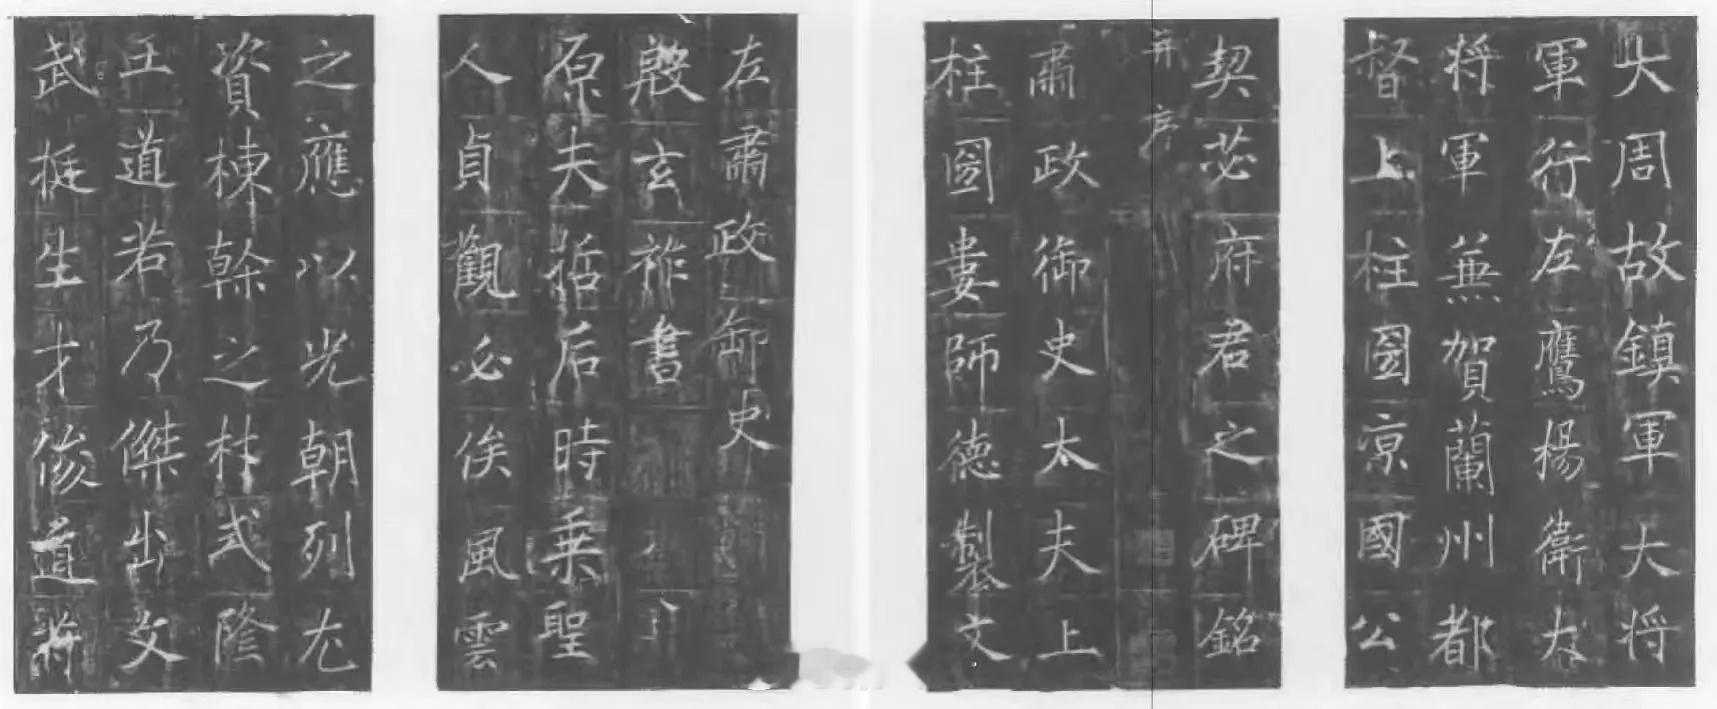 大周故鎮軍大将
軍行左鷹楊衛大
将軍兼賀蘭州都
督上柱圀凉國公
契苾府君之碑銘
并序
肅政御史太夫上
柱圀婁師德製文
左肅政御史
殷玄祚書
原夫括后時乗聖
人貞觀必俟風雲
之應以光朝列尤
資棟幹之材式隆
王道若乃傑出文
武挺生才俊道将